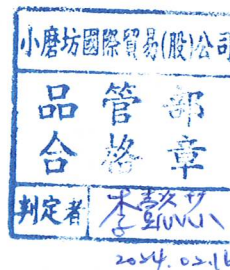 小磨坊國際貿易(股)公司
品管部
合格章
判定者 李
2024.02.16